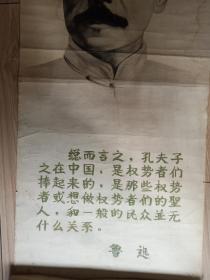 總而言之，孔夫子
之在中国，是权势者们
捧起来的，是那些权势
者或想做权势者们的聖
人，和一般的民众並无
什么关系。
鲁迅